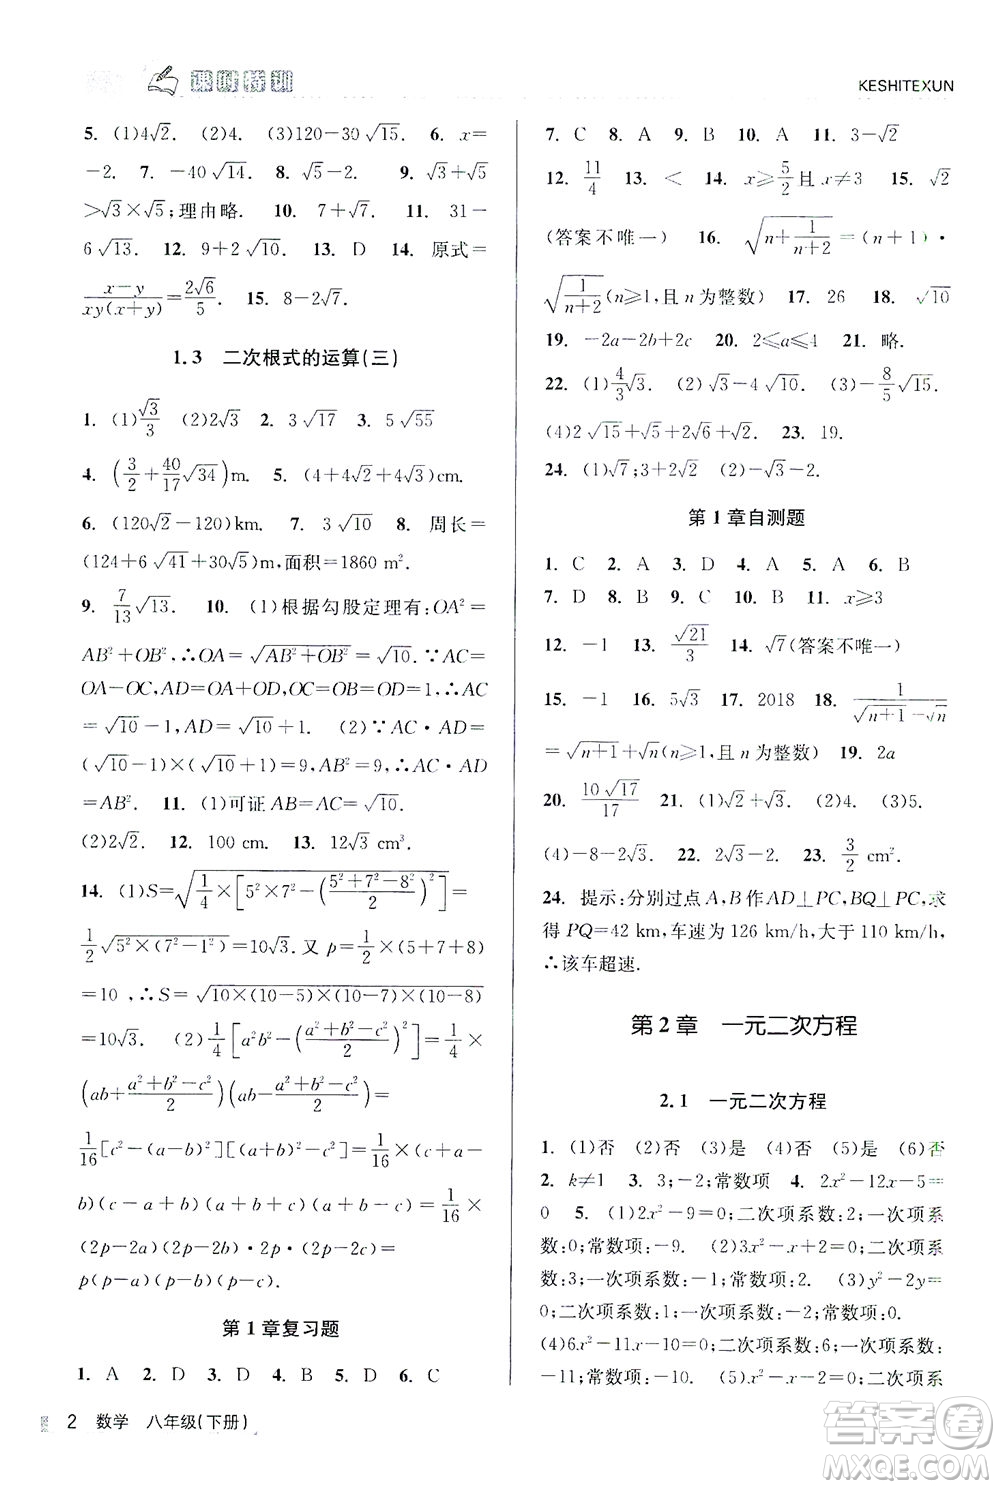 课时特训
KESHITEXUN
5. (1)4√2. (2)4. (3)120-30√15. 6. x=
-2. 7. -40√14. 8. √5-2. 9. √3+√5
>√3×√5;理由略. 10. 7+√7. 11. 31-
6√13. 12. 9+2√10. 13. D 14. 原式=
(x-y)/(xy(x+y))=2√6/5. 15. 8-2√7.
1.3 二次根式的运算(三)
1. (1)√3/3 (2)2√3 2. 3√17 3. 5√55
4. (3/2+40/17√34)m. 5. (4+4√2+4√3)cm.
6. (120√2-120)km. 7. 3√10 8. 周长=
(124+6√41+30√5)m,面积=1860 m².
9. 7/13√13. 10. (1)根据勾股定理有:OA²=
AB²+OB²,∴OA=√(AB²+OB²)=√10.∵AC=
OA-OC,AD=OA+OD,OC=OB=OD=1,∴AC
=√10-1,AD=√10+1. (2)∵AC·AD=
(√10-1)×(√10+1)=9,AB²=9,∴AC·AD
=AB². 11. (1)可证AB=AC=√10.
(2)2√2. 12. 100 cm. 13. 12√3 cm³.
14. (1)S=√(1/4×[5²×7²-((5²+7²-8²)/2)²])=
1/2√(5²×(7²-1²))=10√3.又p=1/2×(5+7+8)
=10,∴S=√(10×(10-5)×(10-7)×(10-8))
=10√3. (2)1/4[a²b²-((a²+b²-c²)/2)²]=1/4×
(ab+(a²+b²-c²)/2)(ab-(a²+b²-c²)/2)=
1/16[c²-(a-b)²][(a+b)²-c²]=1/16×(c+a-
b)(c-a+b)(a+b+c)(a+b-c)=1/16×
(2p-2a)(2p-2b)·2p·(2p-2c)=
p(p-a)(p-b)(p-c).
第1章复习题
1. A 2. D 3. D 4. B 5. D 6. C
7. C 8. A 9. B 10. A 11. 3-√2
12. 11/4 13. < 14. x≥5/2且x≠3 15. √2
(答案不唯一) 16. √(n+1/(n+2))=(n+1)·
√(1/(n+2))(n≥1,且n为整数) 17. 26 18. √10
19. -2a-2b+2c 20. 2≤a≤4 21. 略.
22. (1)4/3√3. (2)√3-4√10. (3)-8/5√15.
(4)2√15+√5+2√6+√2. 23. 19.
24. (1)√7;3+2√2 (2)-√3-2.
第1章自测题
1. C 2. A 3. D 4. A 5. A 6. B
7. D 8. B 9. C 10. B 11. x≥3
12. -1 13. √21/3 14. √7(答案不唯一)
15. -1 16. 5√3 17. 2018 18. 1/(√(n+1)-√n)
=√(n+1)+√n(n≥1,且n为整数) 19. 2a
20. 10√17/17 21. (1)√2+√3. (2)4. (3)5.
(4)-8-2√15. 22. 2√3-2. 23. 3/2 cm².
24. 提示:分别过点A,B作AD⊥PC,BQ⊥PC,求
得PQ=42 km,车速为126 km/h,大于110 km/h,
∴该车超速.
第2章 一元二次方程
2.1 一元二次方程
1. (1)否 (2)否 (3)是 (4)否 (5)是 (6)否
2. k≠1 3. -2;常数项 4. 2x²-12x-5=
0 5. (1)2x²-9=0;二次项系数:2;一次项系
数:0;常数项:-9. (2)3x²-x+2=0;二次项系
数:3;一次项系数:-1;常数项:2. (3)y²-2y=
0;二次项系数:1;一次项系数:-2;常数项:0.
(4)6x²-11x-1=0;二次项系数:6;一次项系数:
-11;常数项:-1. (5)2x²-1=0;二次项系数:
2 数学 八年级(下册)
答案圈
MXQE.COM